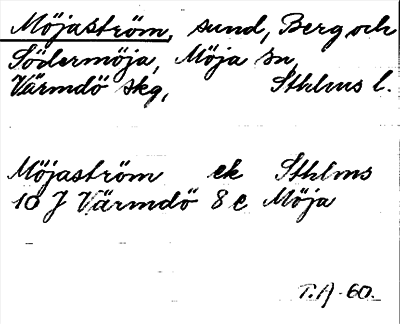 Möjaström, sund, Berg och
Södermöja, Möja sn,
Värmdö skg, Sthlms l.
Möjaström ek Sthlms
10 J Värmdö 8 e Möja
T.A. 60.